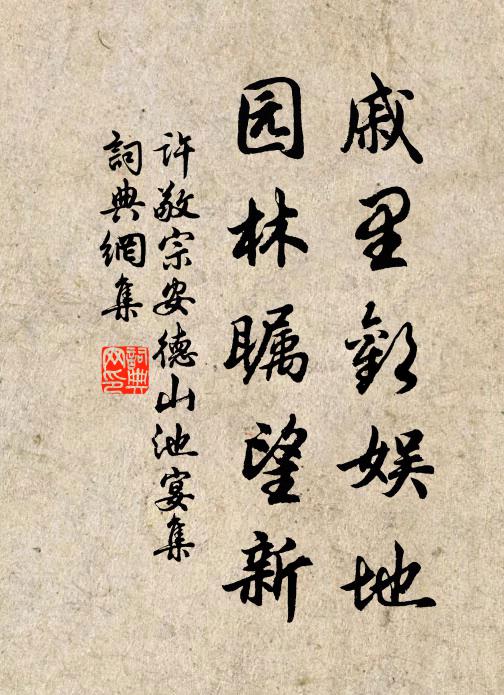 戚里歡娱地
园林瞩望新
许敬宗安德山池宴集
詞典網集
詞典網印